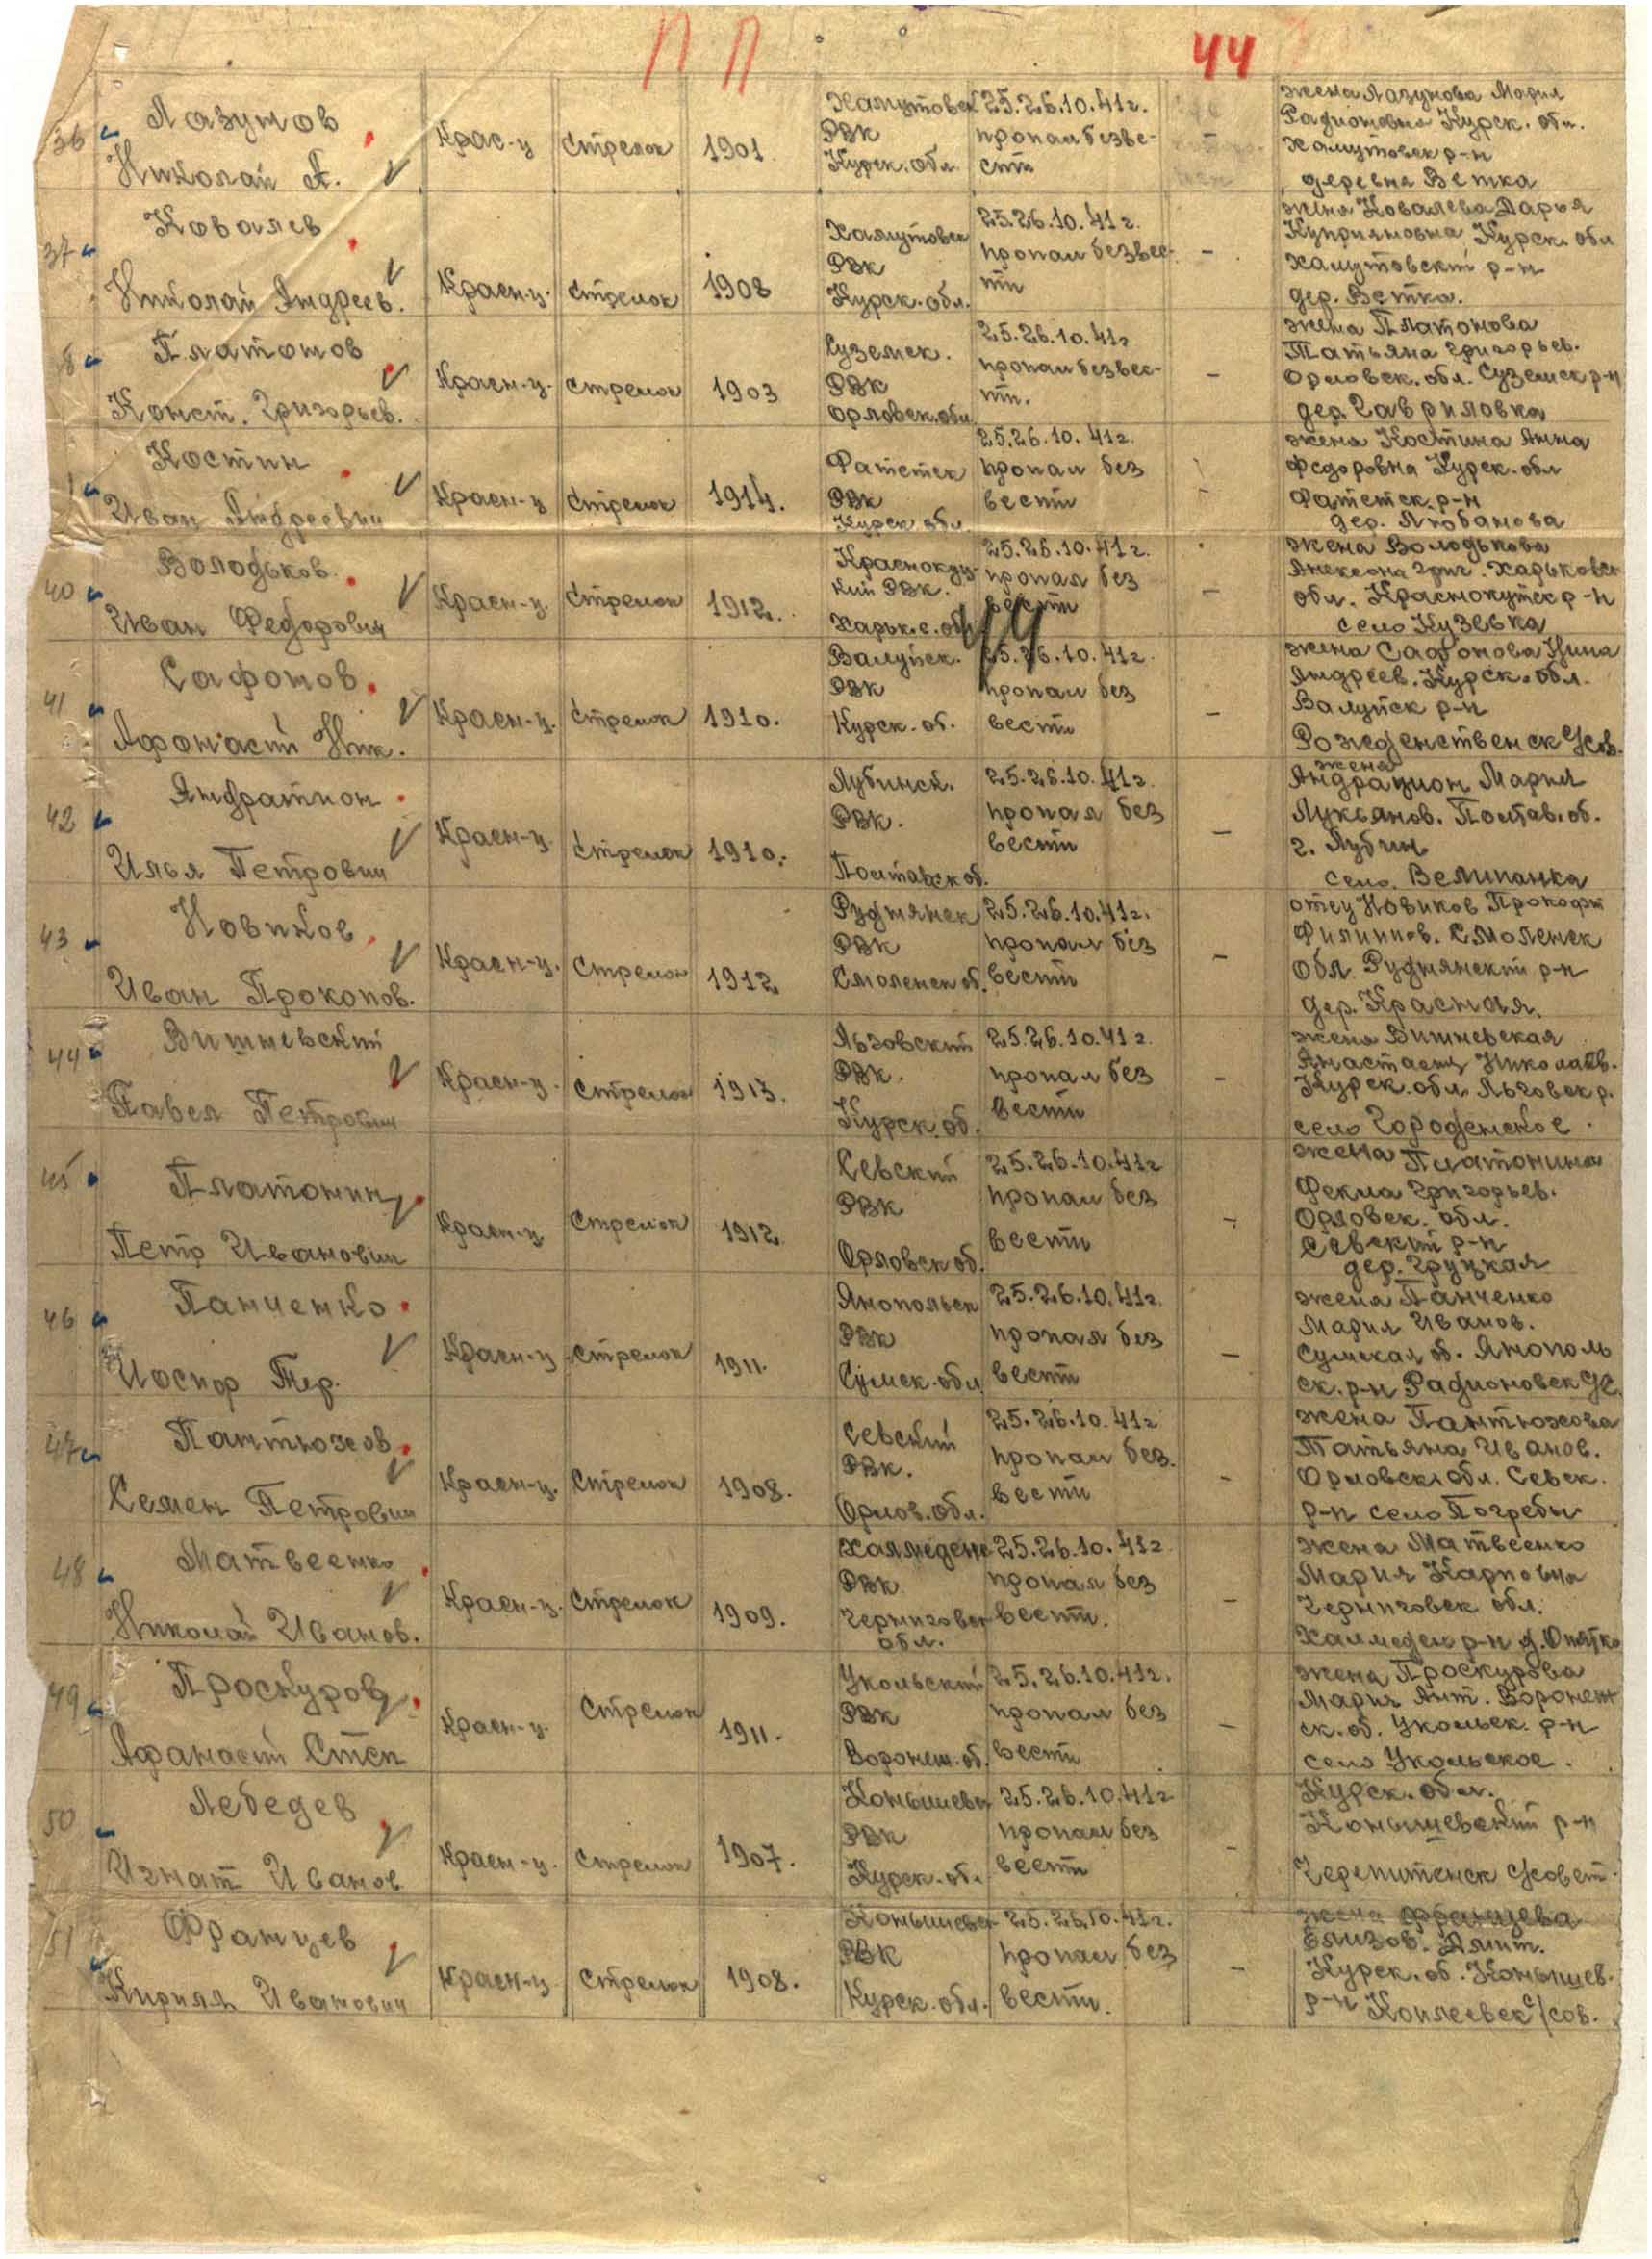 ПП
44
36
Лазунов
Николай А.
Крас-ц
Стрелок
1901
Хамутовск
РВК
Курск. обл.
25.26.10.41г.
пропал безве-
сти
-
жена Лазунова Мария
Радионовна Курск. обл.
Хамутовск р-н
деревня Ветка
37
Ковалев
Николай Андреев.
Красн-ц.
Стрелок
1908
Хамутовск
РВК
Курск. обл.
25.26.10.41г.
пропал безвес-
ти
-
жена Ковалева Дарья
Куприяновна Курск. обл
Хамутовский р-н
дер. Ветка.
8
Платонов
Конст. Григорьев.
Красн-ц.
Стрелок
1903
Суземск.
РВК
Орловск. обл.
25.26.10.41г
пропал безвес-
ти.
-
жена Платонова
Татьяна Григорьев.
Орловск. обл. Суземск р-н
дер. Гавриловка
Костин
Иван Андреевич
Красн-ц
Стрелок
1914.
Фатетск
РВК
Курск обл.
25.26.10.41г.
пропал без
вести
-
жена Костина Анна
Федоровна Курск. обл
Фатетск. р-н
дер. Лобанова
40
Володьков.
Иван Федорович
Красн-ц.
Стрелок
1912.
Краснокуц-
кий РВК.
Харьк. с. обл
25.26.10.41г.
пропал без
вести
-
жена Володькова
Григ. Харьковск
обл. Краснокутск р-н
село Кузевка
41
Сафонов.
Афонасий Ник.
Красн-ц.
Стрелок
1910.
Валуйск.
РВК
Курск. об.
25.26.10.41г.
пропал без
вести
-
жена Сафонова Нина
Андреев. Курск. обл.
Валуйск р-н
Рожденственск с/сов.
42
Андратион
Илья Петрович
Красн-ц.
Стрелок
1910.
Лубинск.
РВК.
Полтавск об.
25.26.10.41г.
пропал без
вести
-
жена
Андрацион Мария
Лукьянов. Полтав. об.
г. Лубин
село. Величанка
43
Новиков
Иван Прокопов.
Красн-ц.
Стрелок
1912
Руднянск
РВК
Смоленск об.
25.26.10.41г.
пропал без
вести
-
отец Новиков Прокофий
Филиппов. Смоленск
обл. Руднянский р-н
дер. Красная.
44
Вишневский
Павел Петрович
Красн-ц.
Стрелок
1913.
Льговский
РВК.
Курск. об.
25.26.10.41г.
пропал без
вести
-
жена Вишневская
Николаев.
Курск. обл. Льговск р.
село Городенское.
45
Платонин
Петр Иванович
Красн-ц
Стрелок
1912.
Севский
РВК
Орловск об.
25.26.10.41г
пропал без
вести
-
жена Платонина
Фекла Григорьев.
Орловск. обл.
Севский р-н
дер. Груцкая
46
Панченко
Иосиф Тер.
Красн-ц
Стрелок
1911.
Янопольск
РВК
Сумск. обл
25.26.10.41г.
пропал без
вести
-
жена Панченко
Мария Иванов.
Сумская об. Янополь
ск. р-н Радионовск
47
Пантюхов
Семен Петрович
Красн-ц.
Стрелок
1908.
Севский
РВК.
Орлов. обл.
25.26.10.41г
пропал без.
вести
-
жена Пантюхова
Татьяна Иванов.
Орловск. обл. Севск.
р-н село Погребы
48
Матвеенко
Николай Иванов.
Красн-ц.
Стрелок
1909.
РВК
Черниговск
обл.
25.26.10.41г
пропал без
вести.
-
жена Матвеенко
Мария Карповна
Черниговск обл.
49
Проскуров
Афанасий Степ
Красн-ц.
Стрелок
1911.
Укольский
РВК
Воронеж. об.
25.26.10.41г.
пропал без
вести
-
жена Проскурова
Мария Ант. Воронеж
ск. об. Укольск. р-н
село Укольское.
50
Лебедев
Игнат Иванов
Красн-ц.
Стрелок
1907.
Конышевск
РВК
Курск. об.
25.26.10.41г
пропал без
вести
-
Курск. обл.
Конышевский р-н
51
Францев
Кирилл Иванович
Красн-ц
Стрелок
1908.
Конышевск
РВК
Курск. обл.
25.26.10.41г.
пропал без
вести.
-
жена Францева
Елизов.
Курск. об. Конышев.
р-н Коплеевск с/сов.